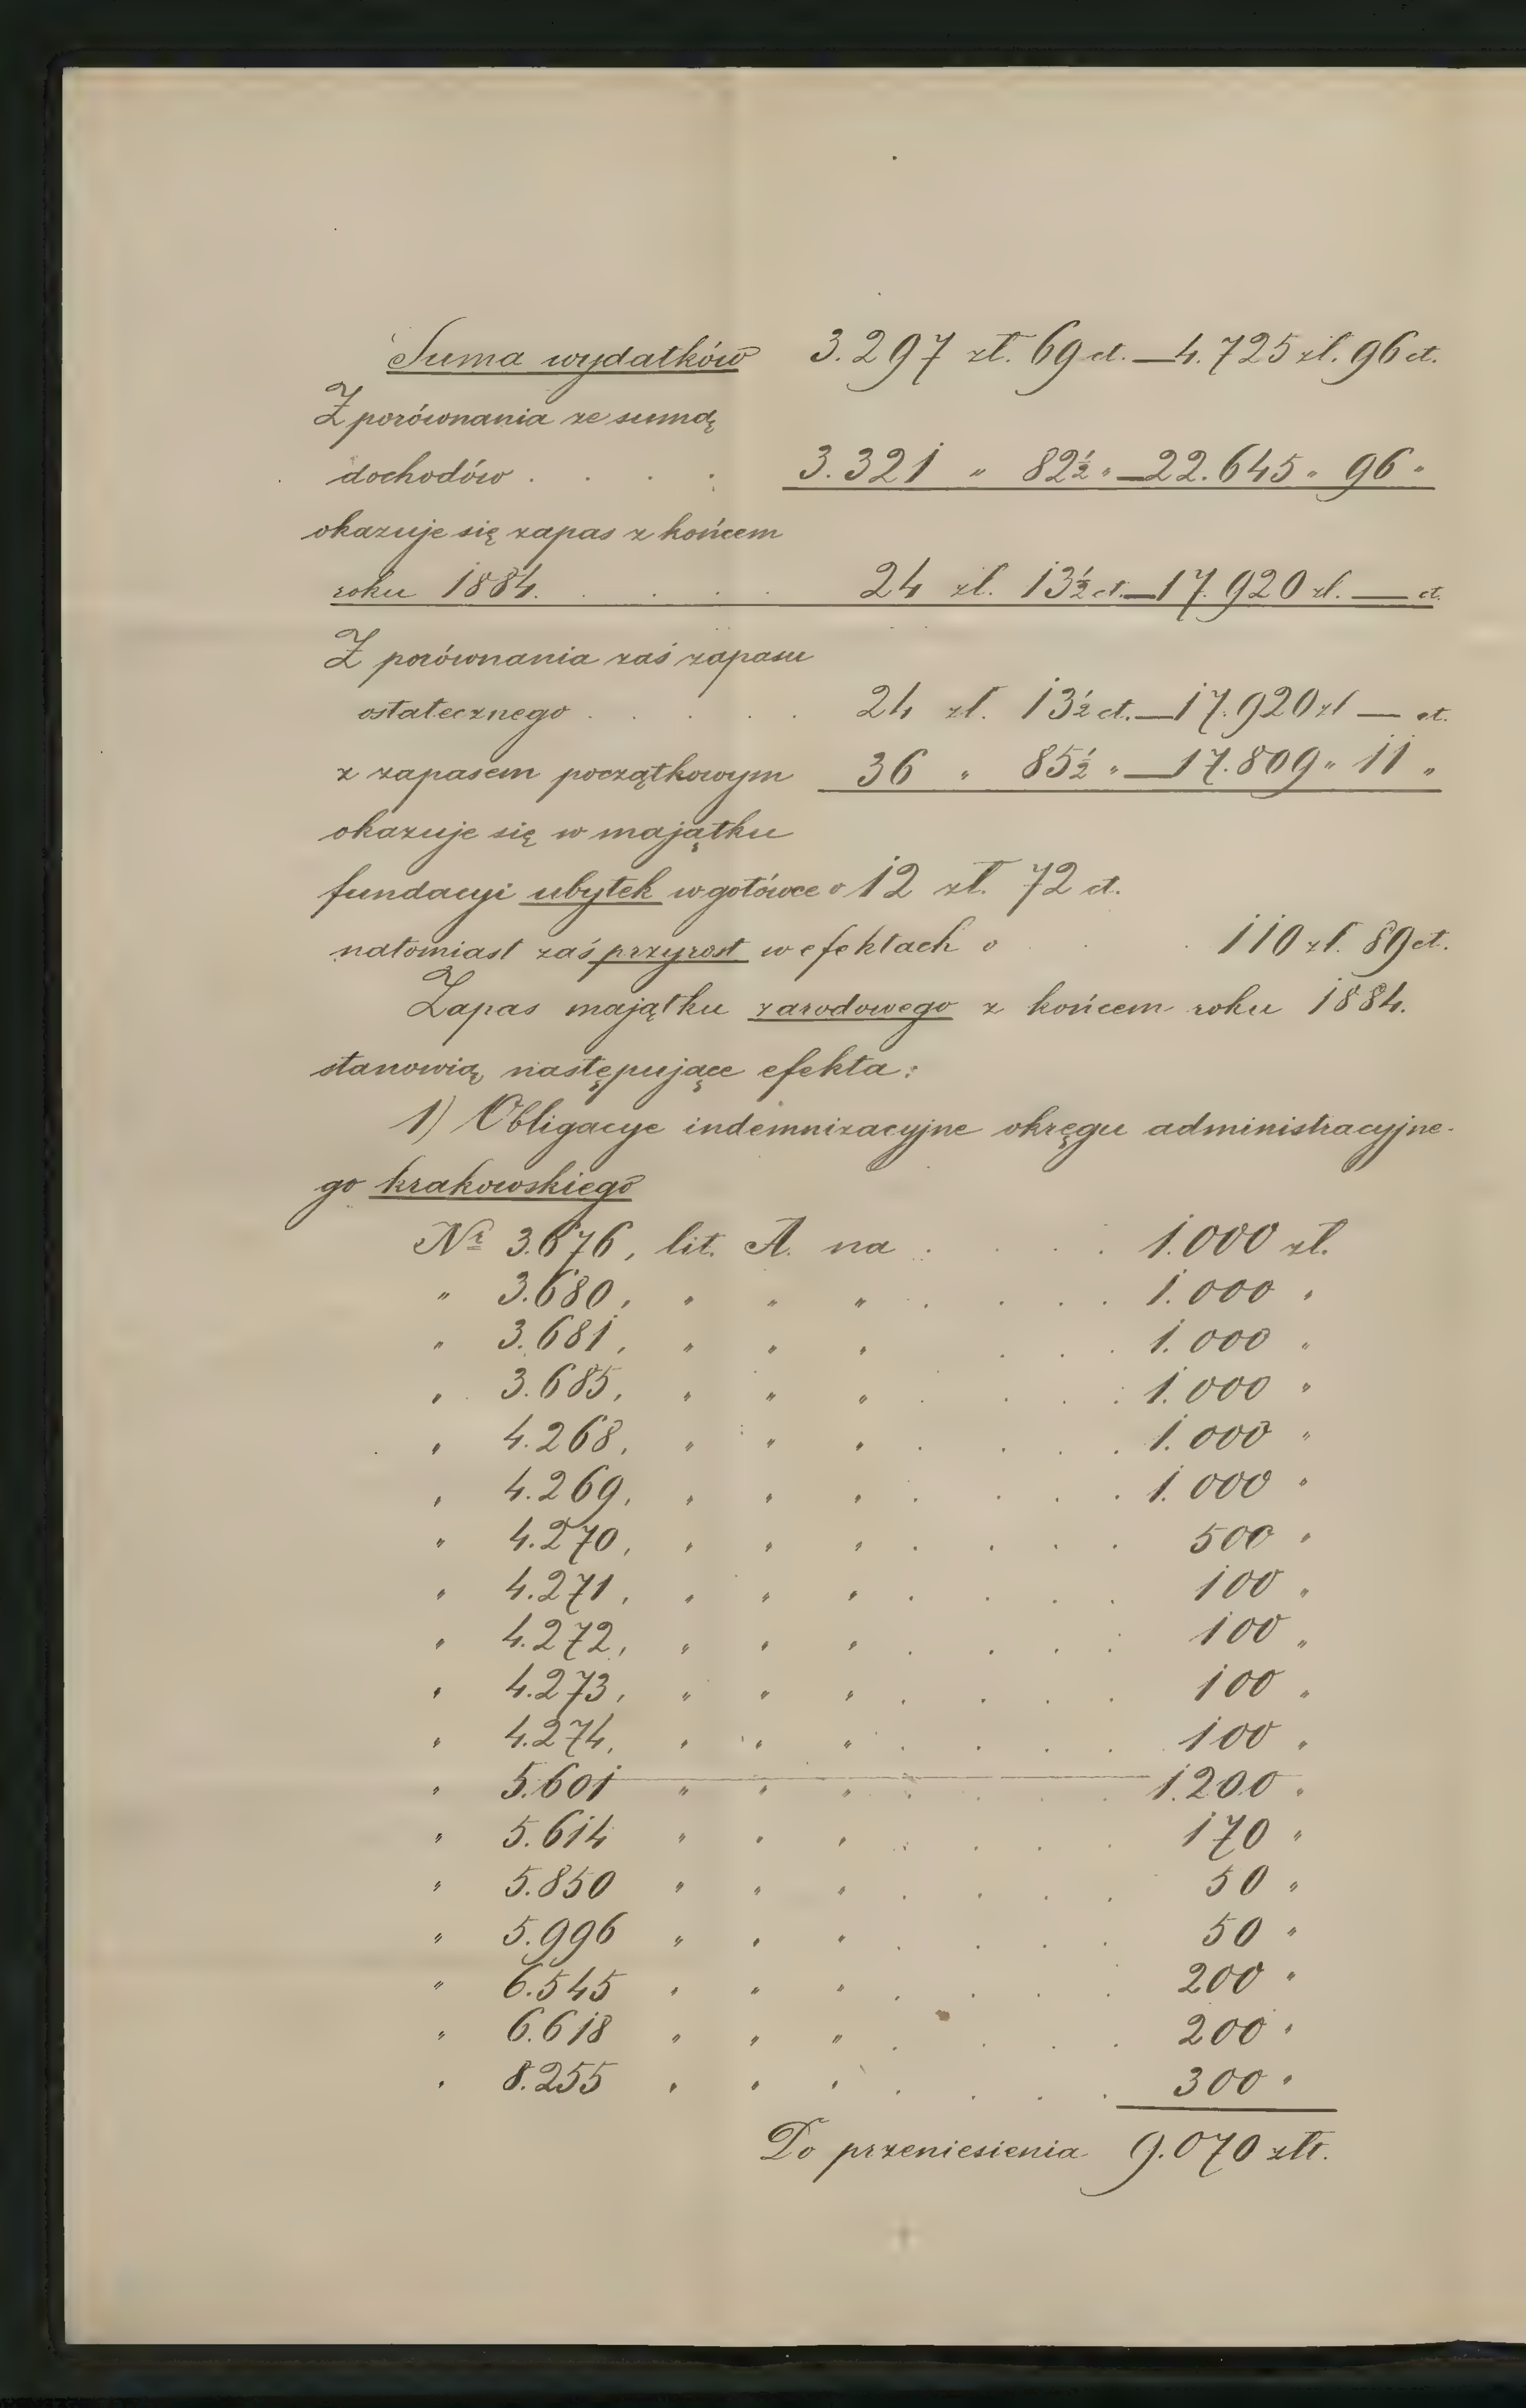 Suma wydatków 3.297 zł. 69 ct. — 4.725 zł. 96 ct.
Z porównania ze sumą
dochodów . . . . 3.321 " 82½ " — 22.645 " 96 "
okazuje się zapas z końcem
roku 1884. . . . . 24 zł. 13½ ct. — 17.920 zł. — ct.
Z porównania zaś zapasu
ostatecznego . . . . 24 zł. 13½ ct. — 17.920 zł — ct.
z zapasem początkowym 36 " 85½ " — 17.809 " 11 "
okazuje się w majątku
fundacyi ubytek w gotówce o 12 zł. 72 ct.
natomiast zaś przyrost w efektach o . . 110 zł. 89 ct.
Zapas majątku zarodowego z końcem roku 1884.
stanowią następujące efekta:
1) Obligacye indemnizacyjne okręgu administracyjne-
go krakowskiego
Nr 3.676, lit. A. na . . . 1.000 zł.
" 3.680, " " " . . . . 1.000 "
" 3.681, " " " . . . 1.000 "
" 3.685, " " " . . . . 1.000 "
" 4.268, " " " . . . . 1.000 "
" 4.269, " " " . . . . 1.000 "
" 4.270, " " " . . . . 500 "
" 4.271, " " " . . . . 100 "
" 4.272, " " " . . . . 100 "
" 4.273, " " " . . . . 100 "
" 4.274, " " " . . . . 100 "
" 5.601 " " " . . . 1.200 "
" 5.614 " " " . . . . 170 "
" 5.850 " " " . . . . 50 "
" 5.996 " " " . . . . 50 "
" 6.545 " " " . . . . 200 "
" 6.618 " " " . . . . 200 "
" 8.255 " " " . . . . 300 "
Do przeniesienia 9.070 złr.